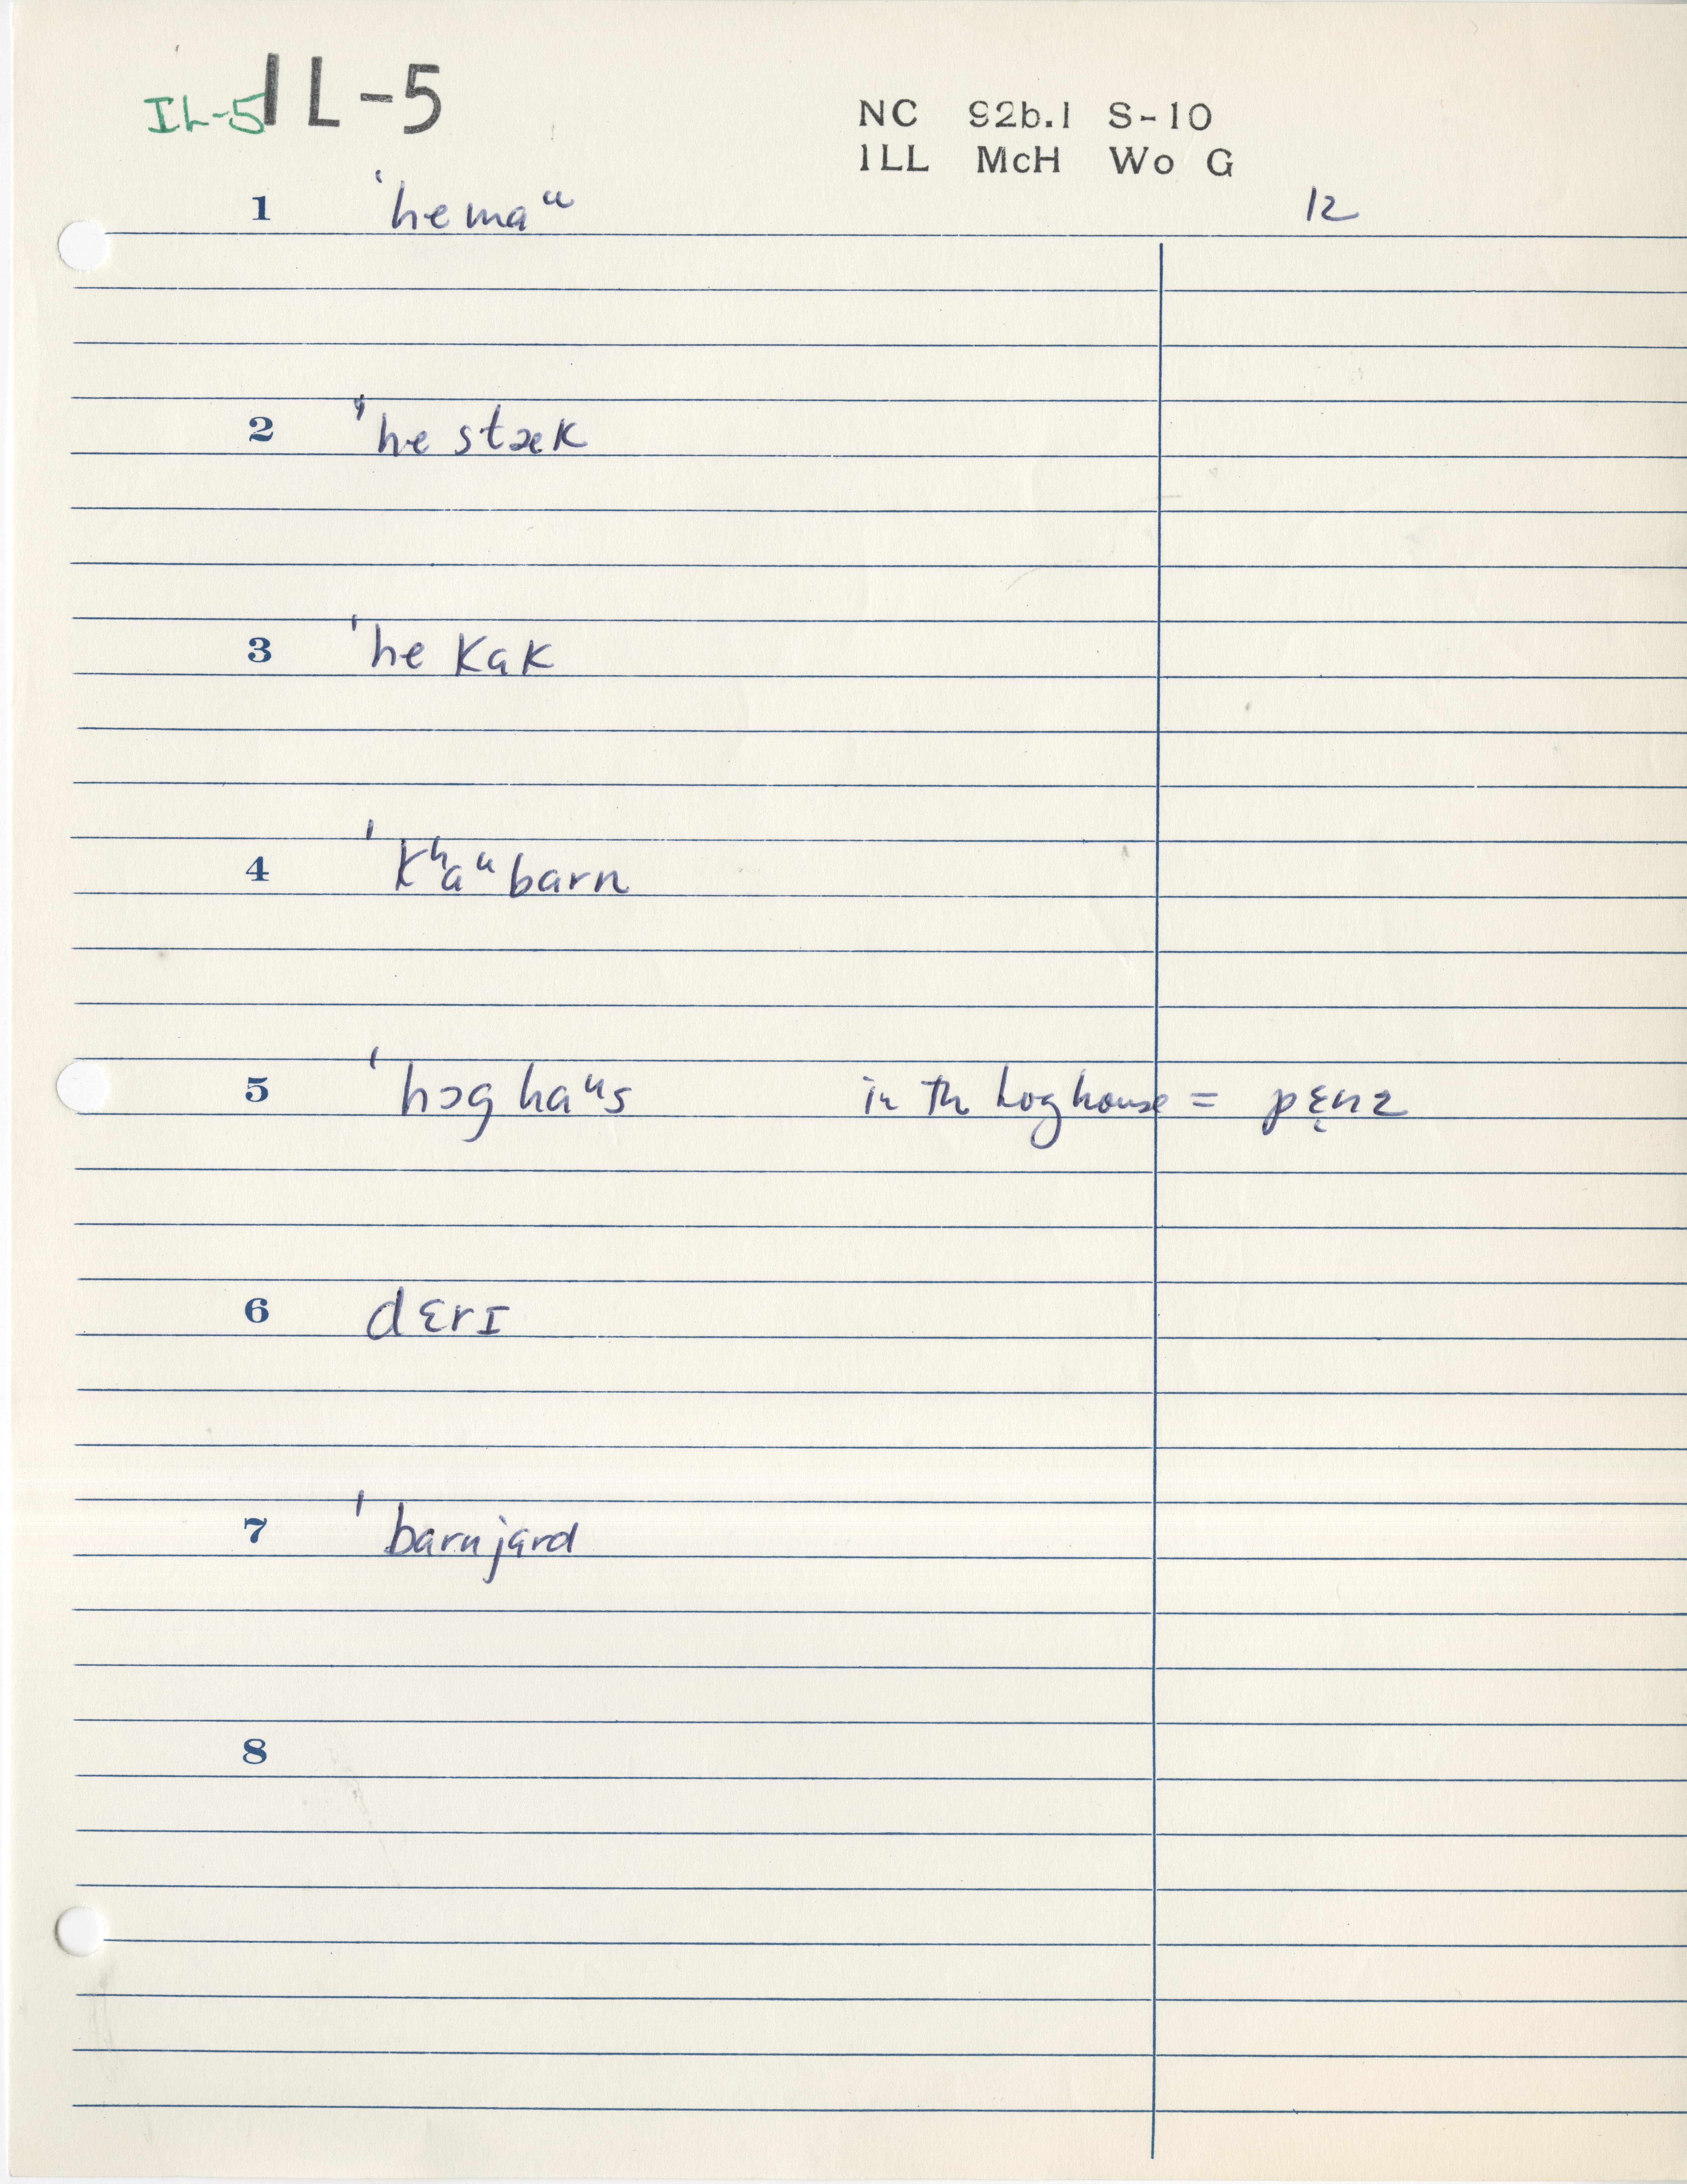 IL-5 IL-5
NC 92b.1 S-10
ILL McH Wo G
12
1 ˈhemaᵘ
2 ˈhestæk
3 ˈhekak
4 ˈkʰaᵘbarn
5 ˈhɔghaᵘs in th hoghouse = pɛ̨nz
6 dɛrɪ
7 ˈbarnjard
8